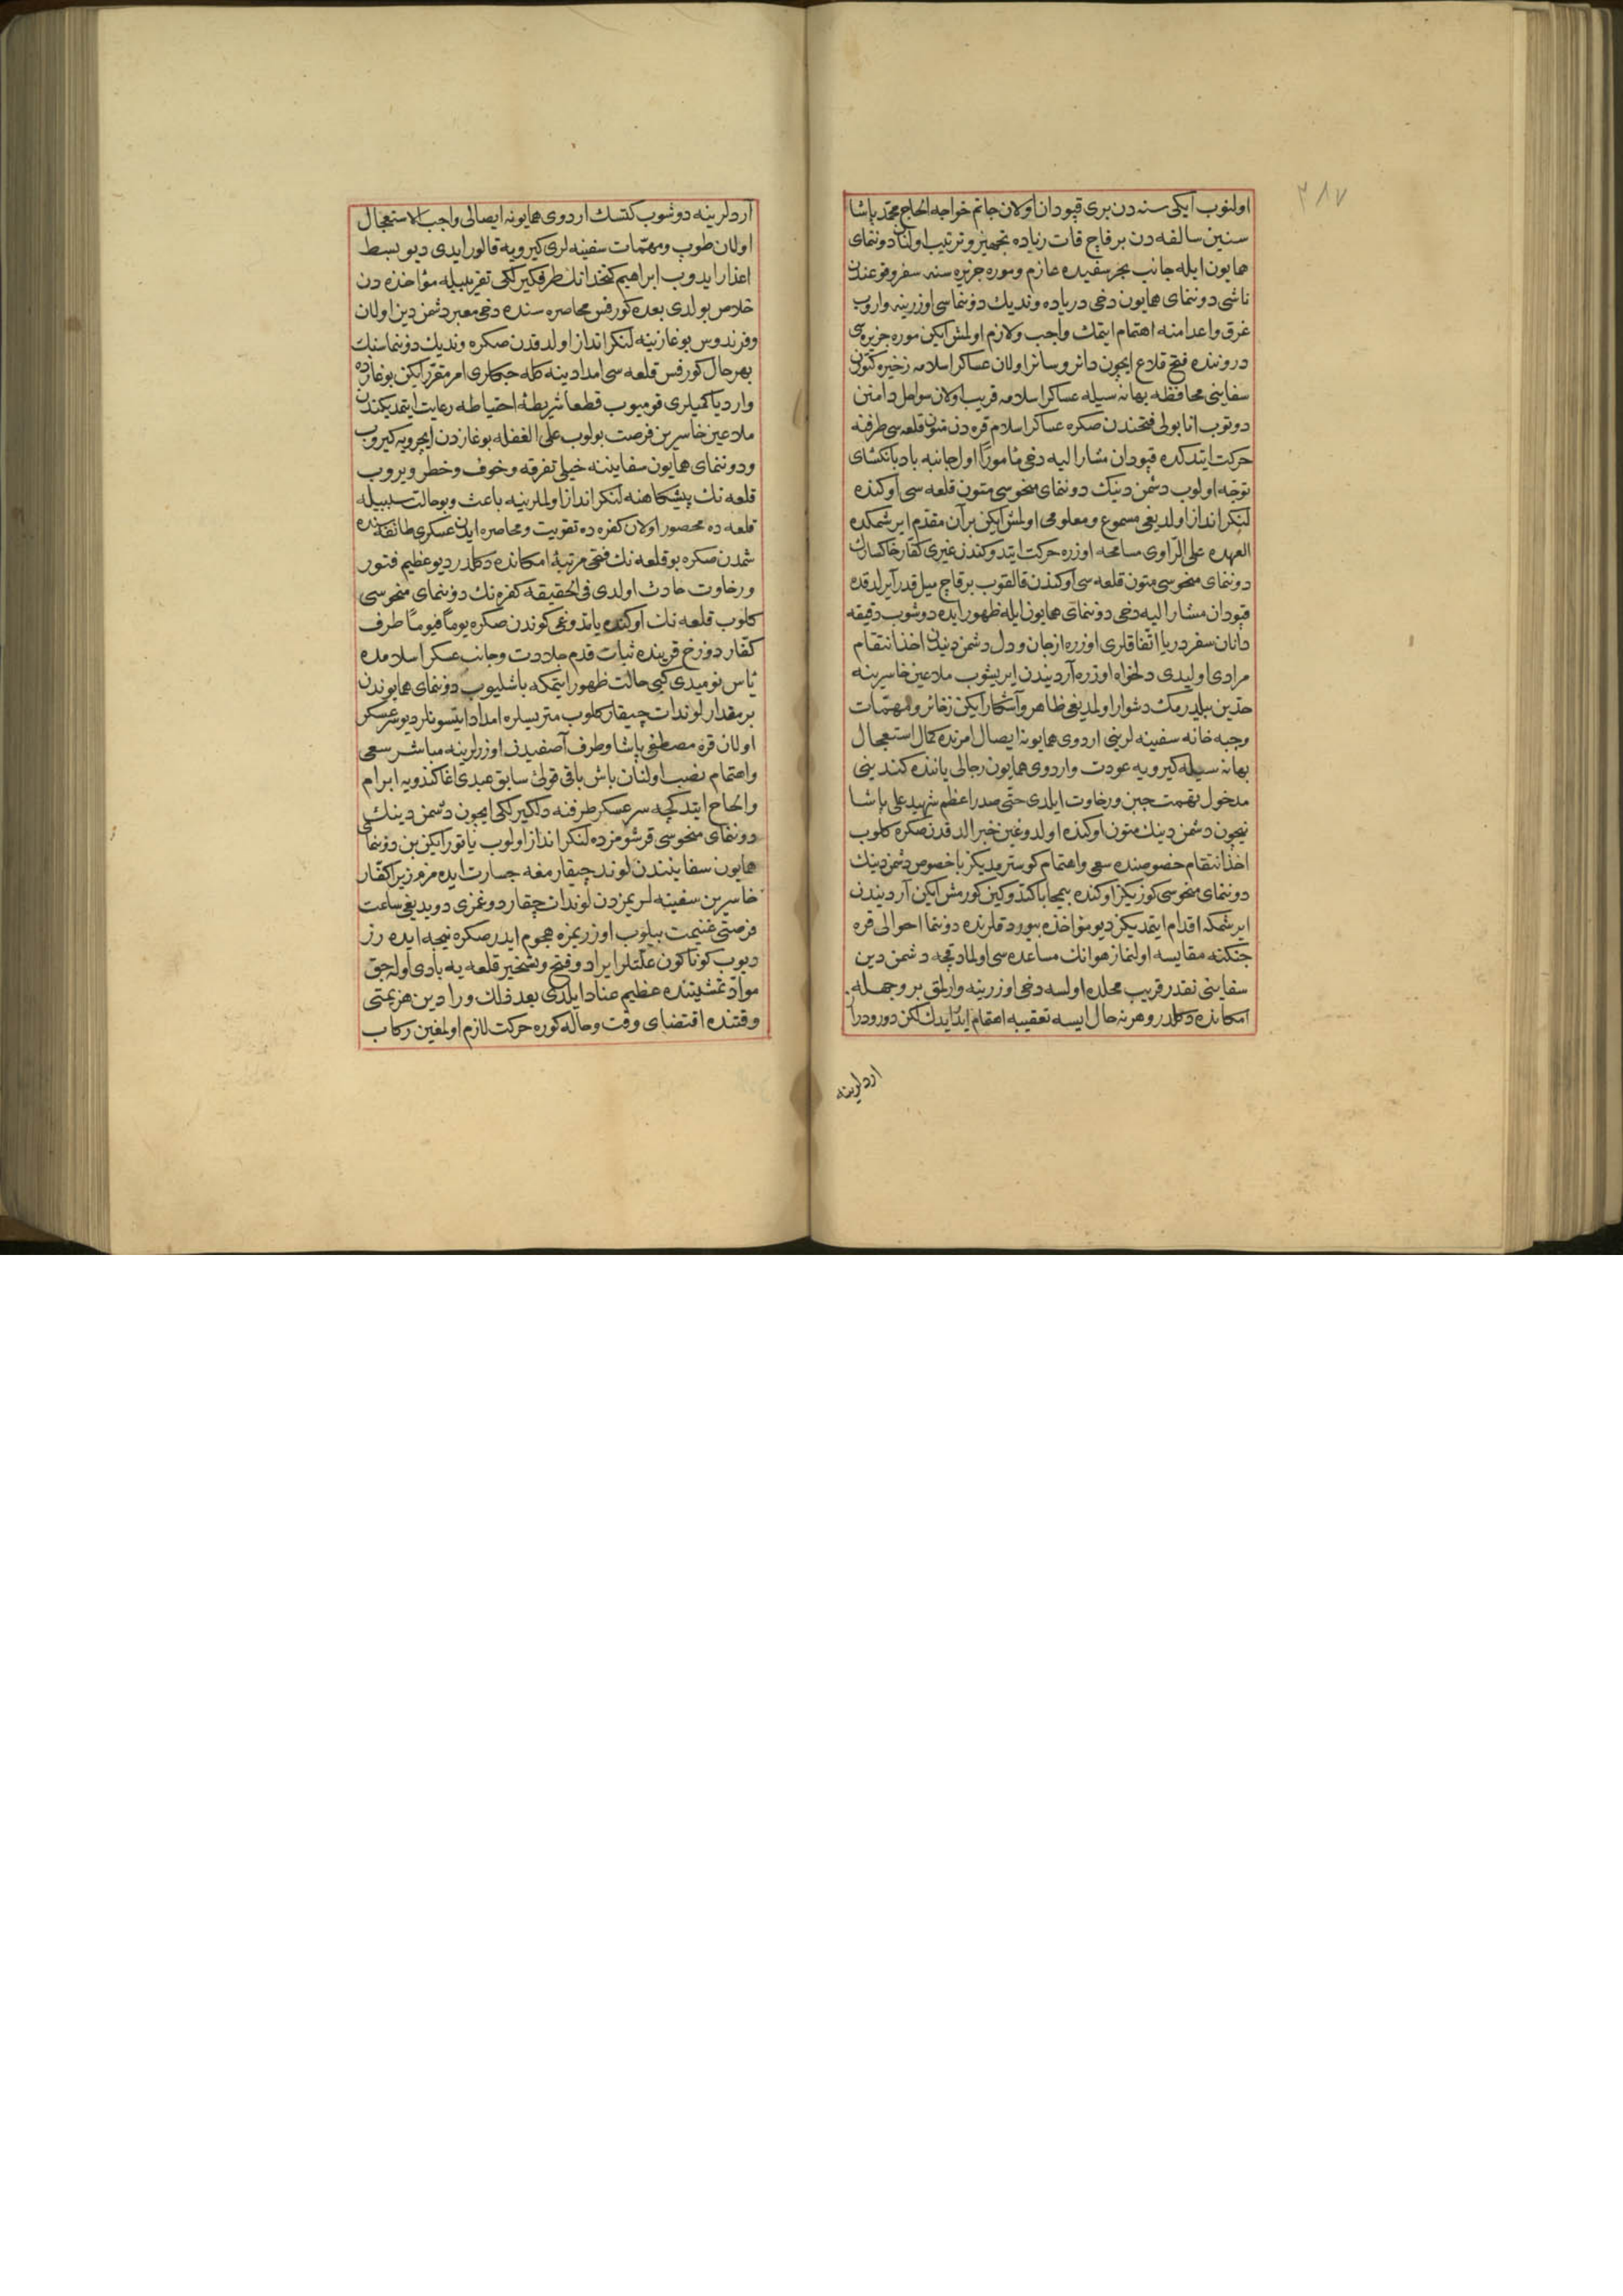 ٣٨٧
اولنوب ایکی سنه دن بری قپودان اولان جانم خواجه الحاج محمد پاشا
سنین سالفه دن بر قاچ قات زیاده تجهیز و ترتیب اولنان دوننمای
همایون ایله جانب بحر سفیده عازم و موره جزیره سنه سفر وقوعندن
ناشی دوننمای همایون دخی دریاده وندیك دوننماسی اوزرینه واروب
غرق و اعدامنه اهتمام ایتمك واجب و لازم اولمش ایکن موره جزیره سی
دروننده فتح قلاع ایچون دائر و سائر اولان عساکر اسلامه ذخیره کتورن
سفاینی محافظه بهانه سیله عساکر اسلامه قریب اولان سواحل دامنن
دوتوب انابولی فتحندن صکره عساکر اسلام قره دن متون قلعه سی طرفنه
حرکت ایتدکده قپودان مشار الیه دخی مأمورًا اول جانبه بادبانکشای
توجه اولوب دشمن دینك دوننمای منحوسی متون قلعه سی اوکنده
لنکر انداز اولدیغی مسموع و معلومی اولمش ایکن بر آن مقدم ایرشمکده
العهده علی الراوی مسامحه اوزره حرکت ایتدوکندن غیری کفار خاکسارك
دوننمای منحوسی متون قلعه سی اوکندن قالقوب بر قاچ میل قدر آیرلدقده
قپودان مشار الیه دخی دوننمای همایون ایله ظهور ایده دوشوب دقیقه
دانان سفر دریا اتفاقلری اوزره از جان و دل دشمن دیندن اخذ انتقام
مرادی اولیدی دلخواه اوزره آردیندن ایریشوب ملاعین خاسرینه
حدین بیلدرمك دشوار اولمدیغی ظاهر و آشکار ایکن ذخائر و مهمات
و جبه خانه سفینه لرینی اردوی همایونه ایصال امرنده کمال استعجال
بهانه سیله کیرویه عودت و اردوی همایون رجالی یاننده کندینی
مدخول تهمت جبن و رخاوت ایلدی حتی صدر اعظم شهید علی پاشا
نیچون دشمن دینك متون اوکنده اولدوغین خبر الدقدن صکره کلوب
اخذ انتقام خصوصنده سعی و اهتمام کوسترمدیکز باخصوص دشمن دینك
دوننمای منحوسی کوزیکز اوکنده بیمحابا کتدوکین کورمش ایکن آردیندن
ایرشمکه اقدام ایتمدیکز دیو مؤاخذه بیوردقلرنده دوننما احوالی قره
جنکنه مقایسه اولنماز هوانك مساعده سی اولمادقجه دشمن دین
سفاینی نقدر قریب محلده اولسه دخی اوزرینه وارلمق بر وجهله
امکانده دکلدر و هر نه حال ایسه تعقیبه اهتمام ایدیدك لکن دور و دراز
اردلرینه
آردلرینه دوشوب کتسك اردوی همایونه ایصالی واجب الاستعجال
اولان طوپ و مهمات سفینه لری کیرویه قالور ایدی دیو بسط
اعذار ایدوب ابراهیم کتخدانك طرفکیرلکی تقریبیله مؤاخذه دن
خلاص بولدی بعده کورفس محاصره سنده دخی معبر دشمن دین اولان
وفرندوس بوغازینه لنکر انداز اولدقدن صکره وندیك دوننماسنك
بهرحال کورفس قلعه سی امدادینه کله جکلری امر مقرر ایکن بوغازده
واردیا کمیلری قومیوب قطعا شریطهٔ احتیاطه رعایت ایتمدیکندن
ملاعین خاسرین فرصت بولوب علی الغفله بوغازدن ایچرویه کیروب
و دوننمای همایون سفایننه خیلی تفرقه و خوف و خطر ویروب
قلعه نك پیشکاهنه لنکر انداز اولملرینه باعث و بو حالت سببیله
قلعه ده محصور اولان کفره ده تقویت و محاصره ایدن عسکری طائفه سنده
شمدن صکره بو قلعه نك فتحی مرتبهٔ امکانده دکلدر دیو عظیم فتور
و رخاوت حادث اولدی فی الحقیقه کفره نك دوننمای منحوسی
کلوب قلعه نك اوکنده یاتدوغی کوندن صکره یوماً فیوماً طرف
کفار دوزخ قرینده ثبات قدم جلادت و جانب عسکر اسلامده
یأس نومیدی کبی حالت ظهور ایتمکه باشلیوب دوننمای همایوندن
بر مقدار لوندات چیقار کلوب متریسلره امداد ایتسونلر دیو سرعسکر
اولان قره مصطفی پاشا و طرف آصفیدن اوزرلرینه مباشر سعی
و اهتمام نصب اولنان باش باقی قولی سابق عبدی اغا کندویه ابرام
و الحاح ایتدکجه سرعسکر طرفنه دلکیرلکی ایچون دشمن دینك
دوننمای منحوسی قرشومزده لنکر انداز اولوب یاتور ایکن بن دوننمای
همایون سفایننندن لوند چیقارمغه جسارت ایده مزم زیرا کفار
خاسرین سفینه لریمزدن لوندات چیقاردوغمزی دویدیغی ساعت
فرصتی غنیمت بیلوب اوزریمزه هجوم ایدر صکره نیجه ایده رز
دیوب کوناکون علتلر ایراد و فتح و تسخیر قلعه یه بادی اوله جق
مواد تمشیتنده عظیم عناد ایلدی بعد ذلك ورادین هزیمتی
وقتنده اقتضای وقت و حاله کوره حرکت لازم اولمغین رکاب